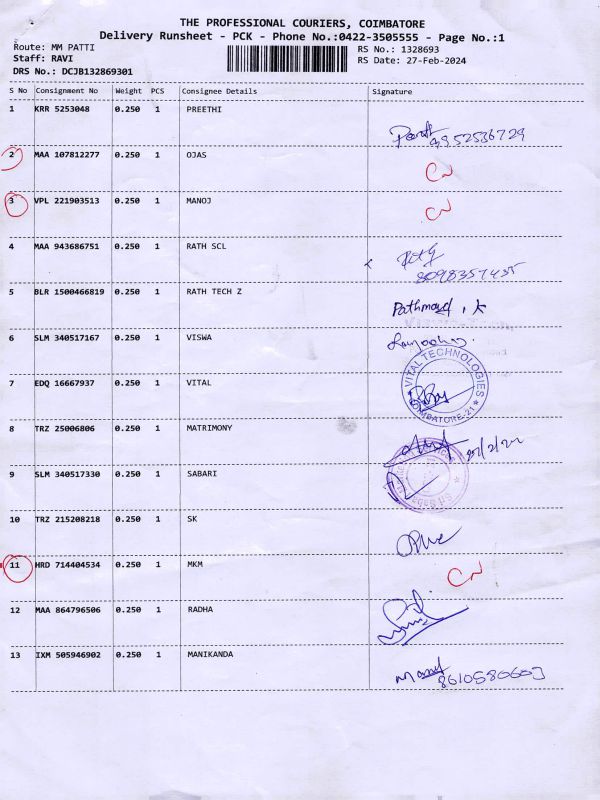 THE PROFESSIONAL COURIERS, COIMBATORE
Delivery Runsheet - PCK - Phone No.:0422-3505555 - Page No.:1
Route: MM PATTI
RS No.: 1328693
Staff: RAVI
RS Date: 27-Feb-2024
DRS No.: DCJB132869301
S No Consignment No Weight PCS Consignee Details Signature
1 KRR 5253048 0.250 1 PREETHI
9952536729
2 MAA 107812277 0.250 1 OJAS
CN
3 VPL 221903513 0.250 1 MANOJ
CN
4 MAA 943686751 0.250 1 RATH SCL
8098357435
5 BLR 1500466819 0.250 1 RATH TECH Z
6 SLM 340517167 0.250 1 VISWA
7 EDQ 16667937 0.250 1 VITAL
VITAL TECHNOLOGIES
COIMBATORE-21
8 TRZ 25006806 0.250 1 MATRIMONY
9 SLM 340517330 0.250 1 SABARI
10 TRZ 215208218 0.250 1 SK
11 HRD 714404534 0.250 1 MKM
CN
12 MAA 864796506 0.250 1 RADHA
13 IXM 505946902 0.250 1 MANIKANDA
8610580603